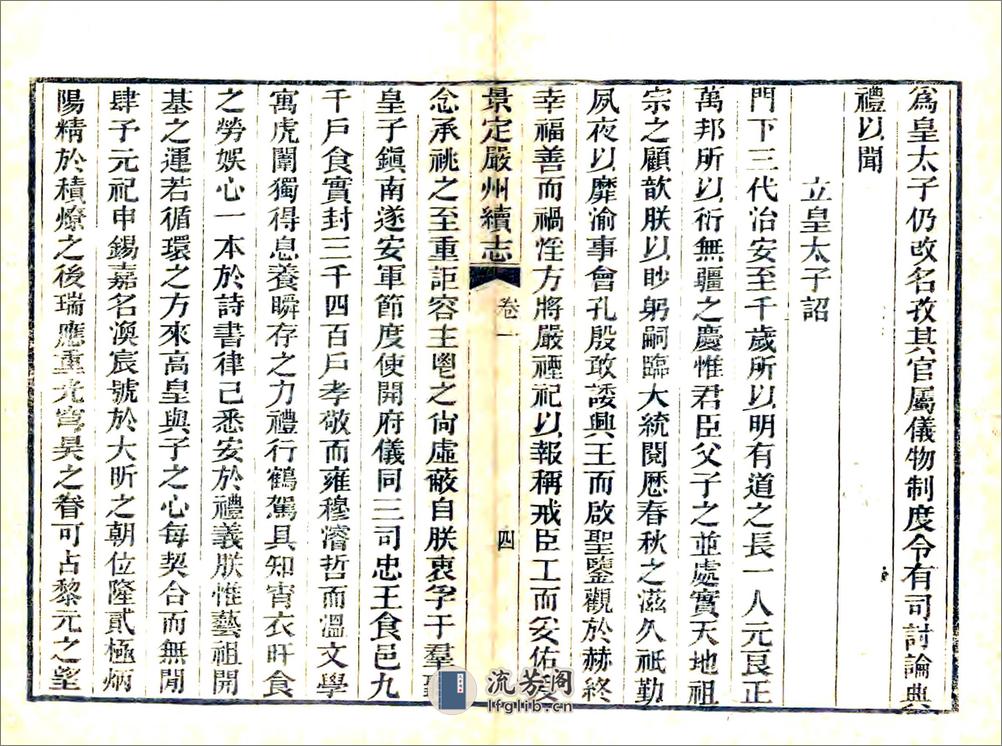 爲皇太子仍改名孜其官屬儀物制度令有司討論典
禮以聞
立皇太子詔
門下三代治安至千歲所以明有道之長一人元良正
萬邦所以衍無疆之慶惟君臣父子之並處實天地祖
宗之顧歆朕以眇躬嗣臨大統閱歷春秋之滋久祗勤
夙夜以靡渝事會孔殷敢諉興王而啟聖鑒觀於赫終
幸福善而禍淫方將嚴禋祀以報稱戒臣工而妥佑
景定嚴州續志
卷一
四
念承祧之至重詎容主鬯之尙虛蔽自朕衷孚于羣
皇子鎭南遂安軍節度使開府儀同三司忠王食邑九
千戶食實封三千四百戶孝敬而雍穆濬哲而溫文學
寓虎闈獨得息養瞬存之力禮行鶴駕具知宵衣旰食
之勞娛心一本於詩書律己悉安於禮義朕惟藝祖開
基之運若循環之方來高皇與子之心每契合而無閒
肆予元祀申錫嘉名渙宸號於大昕之朝位隆貳極炳
陽精於積燎之後瑞應重光穹昊之眷可占黎元之望
流芳阁
lfglib.cn